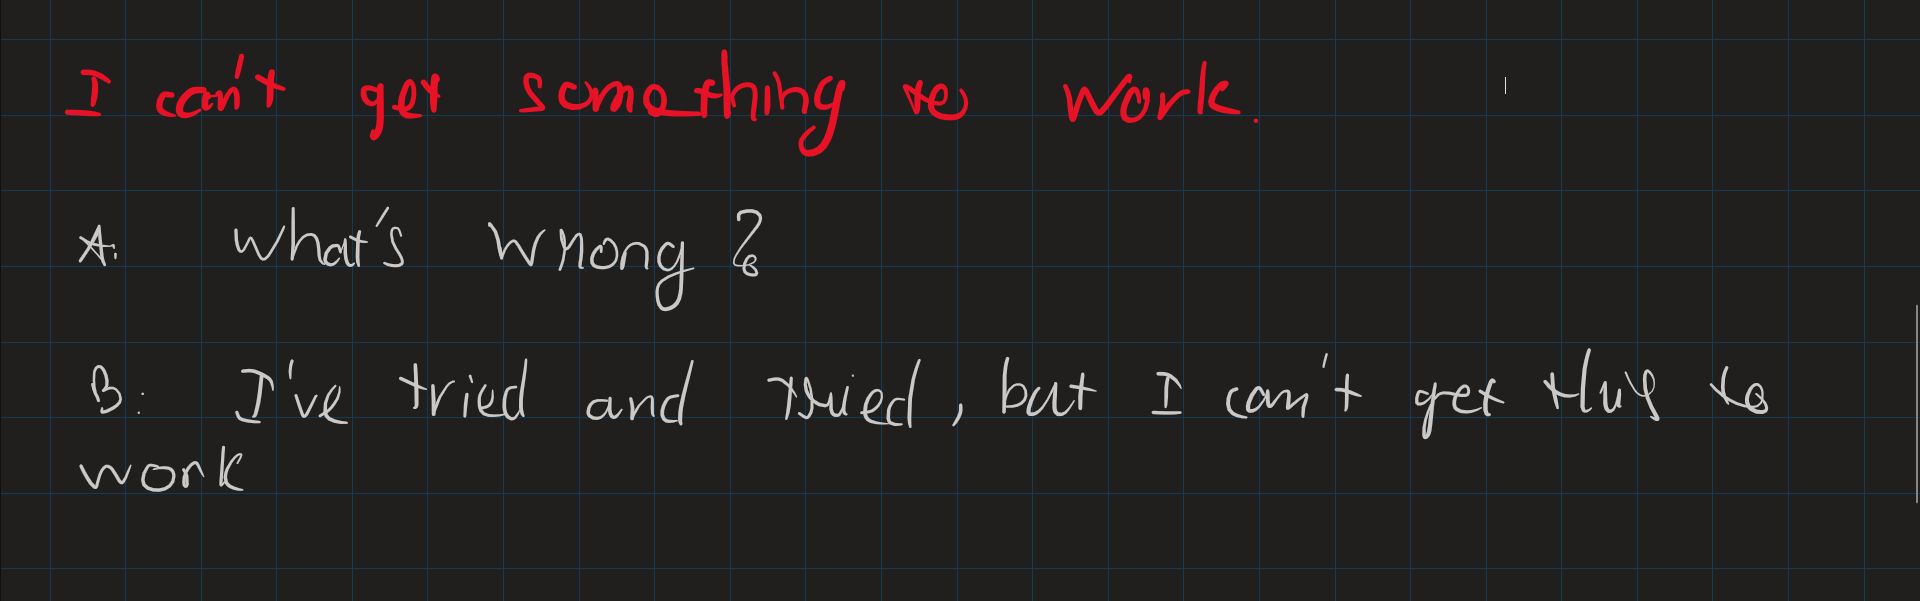 I can't get something to work.
A: What's wrong?
B: I've tried and tried, but I can't get this to
work